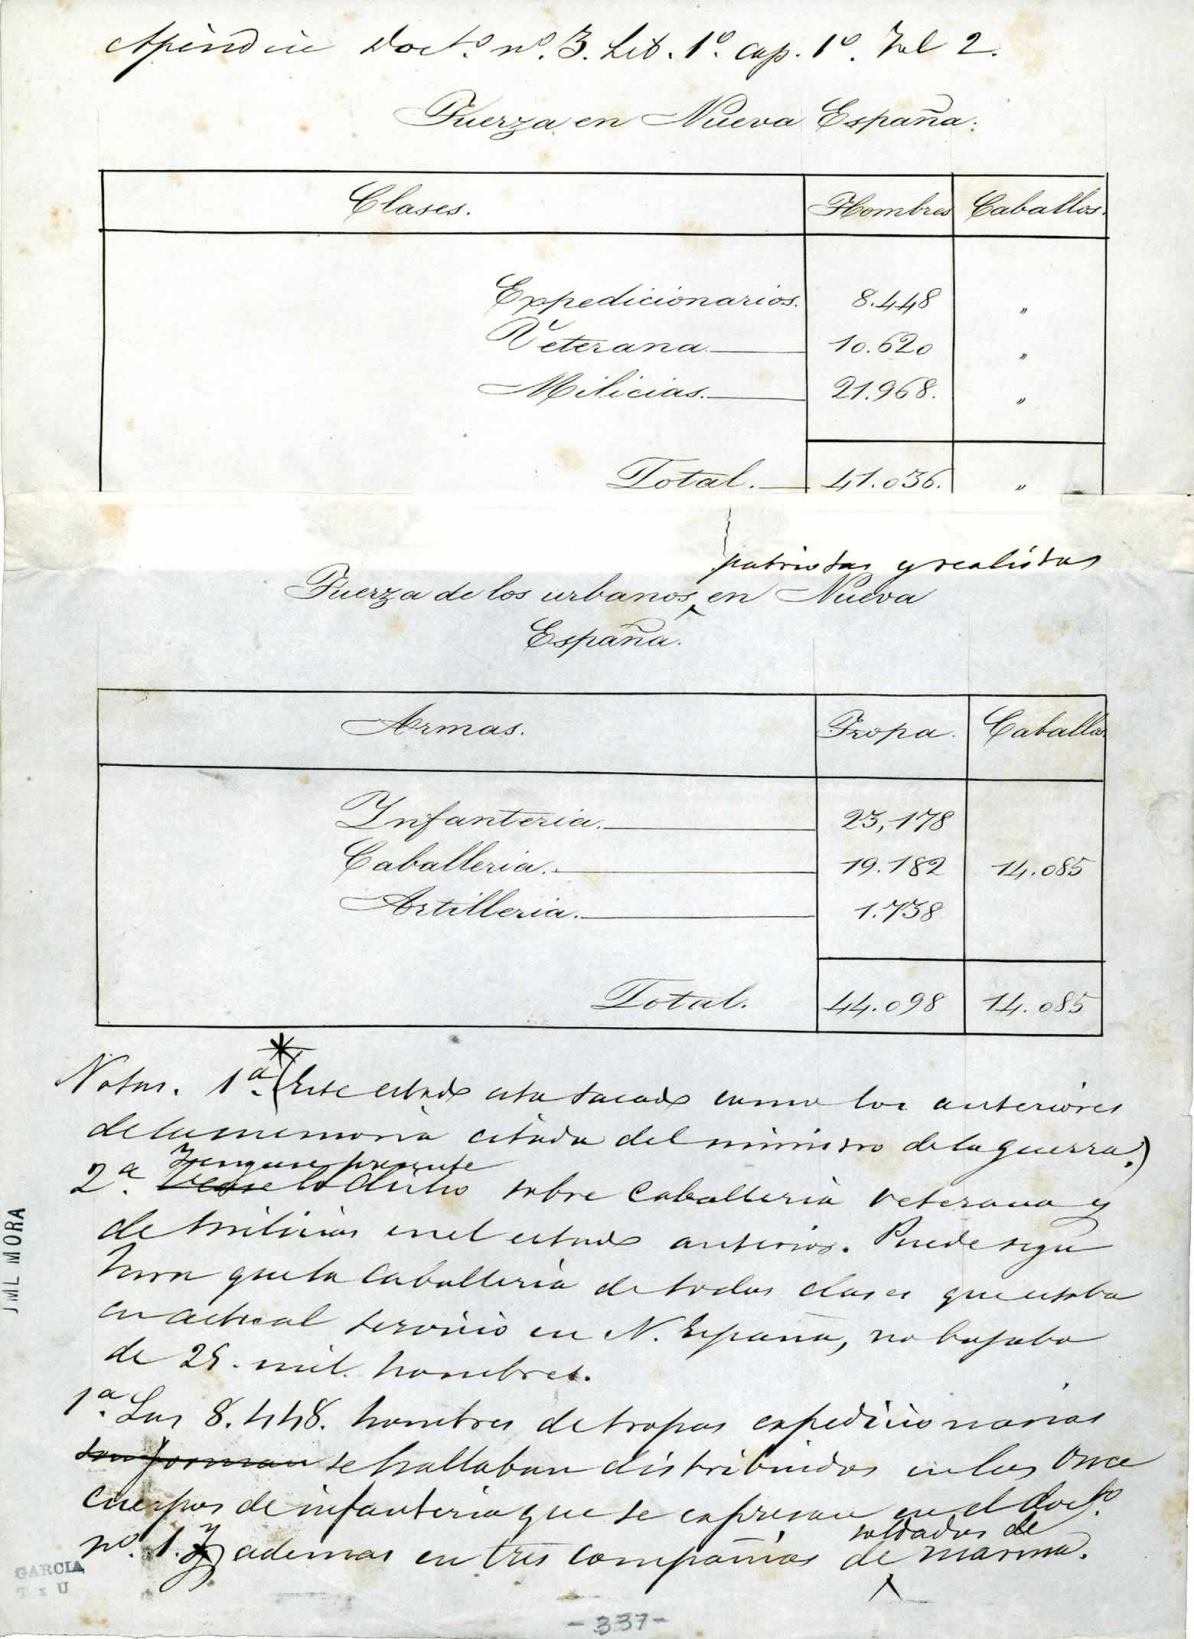 Apéndice Doct.º nº. 3. Lib. 1º. cap. 1º. Tul 2.
Fuerza en Nueva España.
Clases. Hombres Caballos.
Expedicionarios. 8.448 "
Veterana. 10.620 "
Milicias. 21.968. "
Total. 41.036. "
patriotas y realistas
Fuerza de los urbanos, en Nueva
España.
Armas. Tropa. Caballos
Infanteria. 23,178
Caballeria. 19.182 14.085
Artilleria. 1.738
Total. 44.098 14.085
Notas. 1ª. (Este estado esta sacado como los anteriores
de la memoria citada del ministro de la guerra.)
Tengase presente
2ª. Vease lo dicho sobre caballeria veterana y
de milicias en el estado anterior. Puede
que la caballeria de todas clases que estaba
en actual servicio en N. España, no bajaba
de 25. mil. hombres.
1ª. Los 8.448. hombres de tropas expedicionarias
forman se hallaban distribuidos en los once
cuerpos de infanteria que se expresan en el doct.º
soldados de
nº. 1. y ademas en tres compañias de marina.
JML MORA
GARCIA
-337-